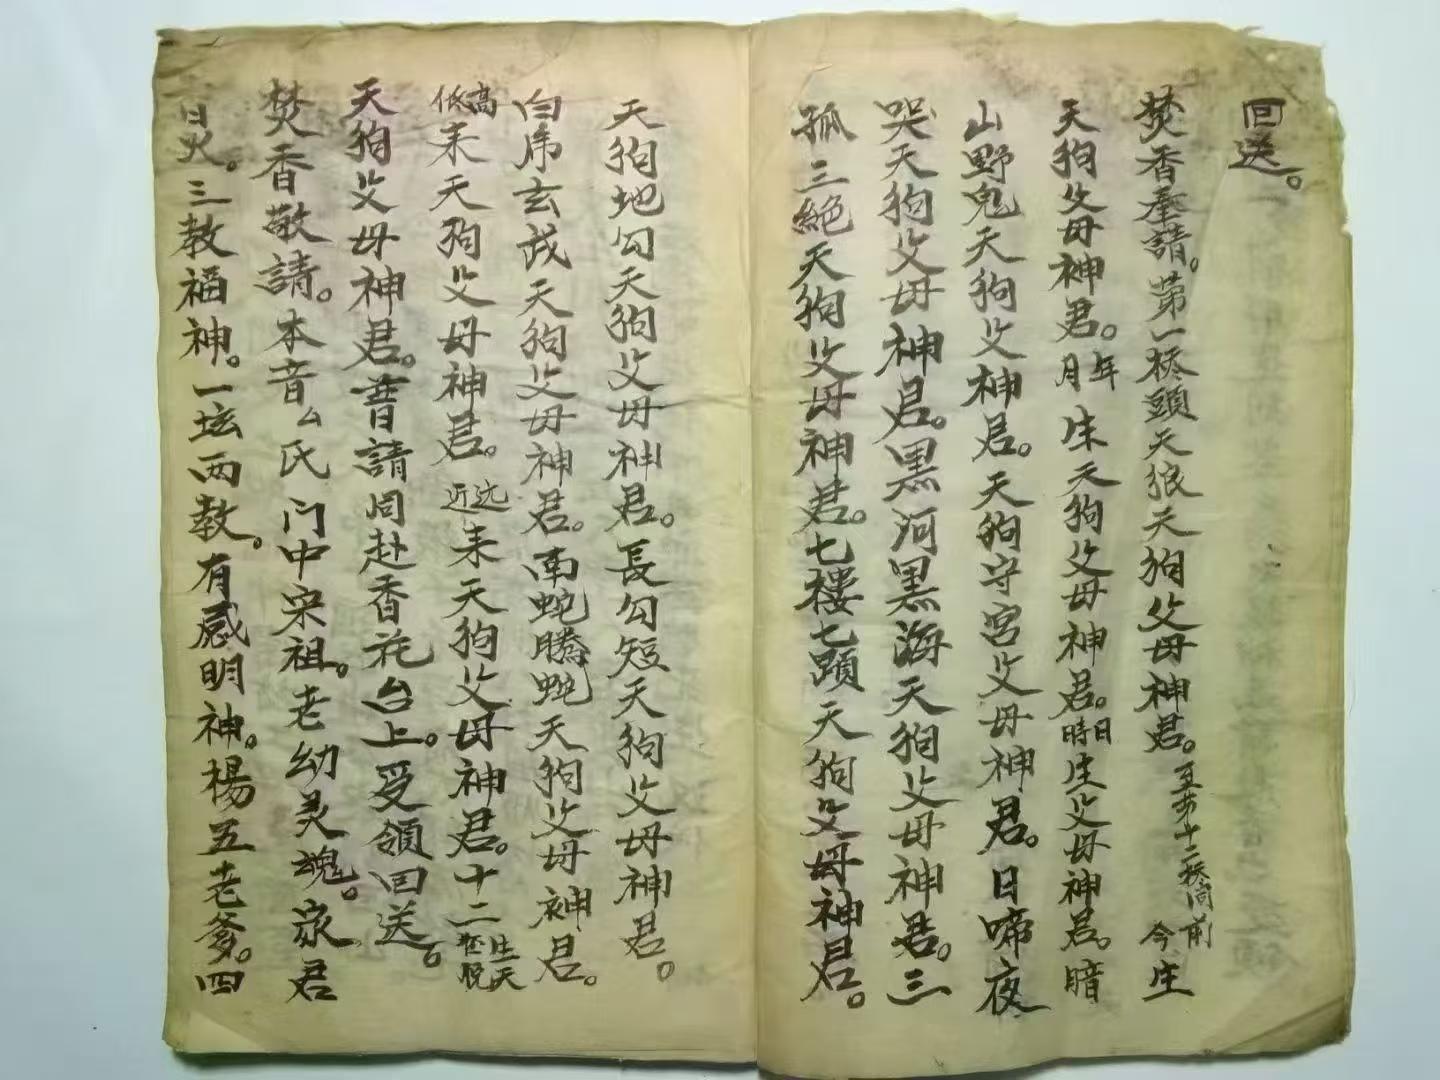 回送。
焚香奉請。第一桥頭天狼天狗父母神君。至第十二桥同前 今生
天狗父母神君。年月生天狗父母神君。日時生父母神君。暗
山野鬼天狗父神君。天狗守宮父母神君。日啼夜
哭天狗父母神君。黑河黑海天狗父母神君。三
孤三絕天狗父母神君。七楼七顕天狗父母神君。
天狗地勾天狗父母神君。長勾短天狗父母神君。
白席玄武天狗父母神君。南蛇騰蛇天狗父母神君。
高低来天狗父母神君。远近来天狗父母神君。十二生天
天狗父母神君。普請同赴香花台上。受領回送。
焚香敬請。本音厶氏门中宋祖。老幼灵魂。家君
日火。三教福神。一坛两教。有感明神。楊五老爹。四